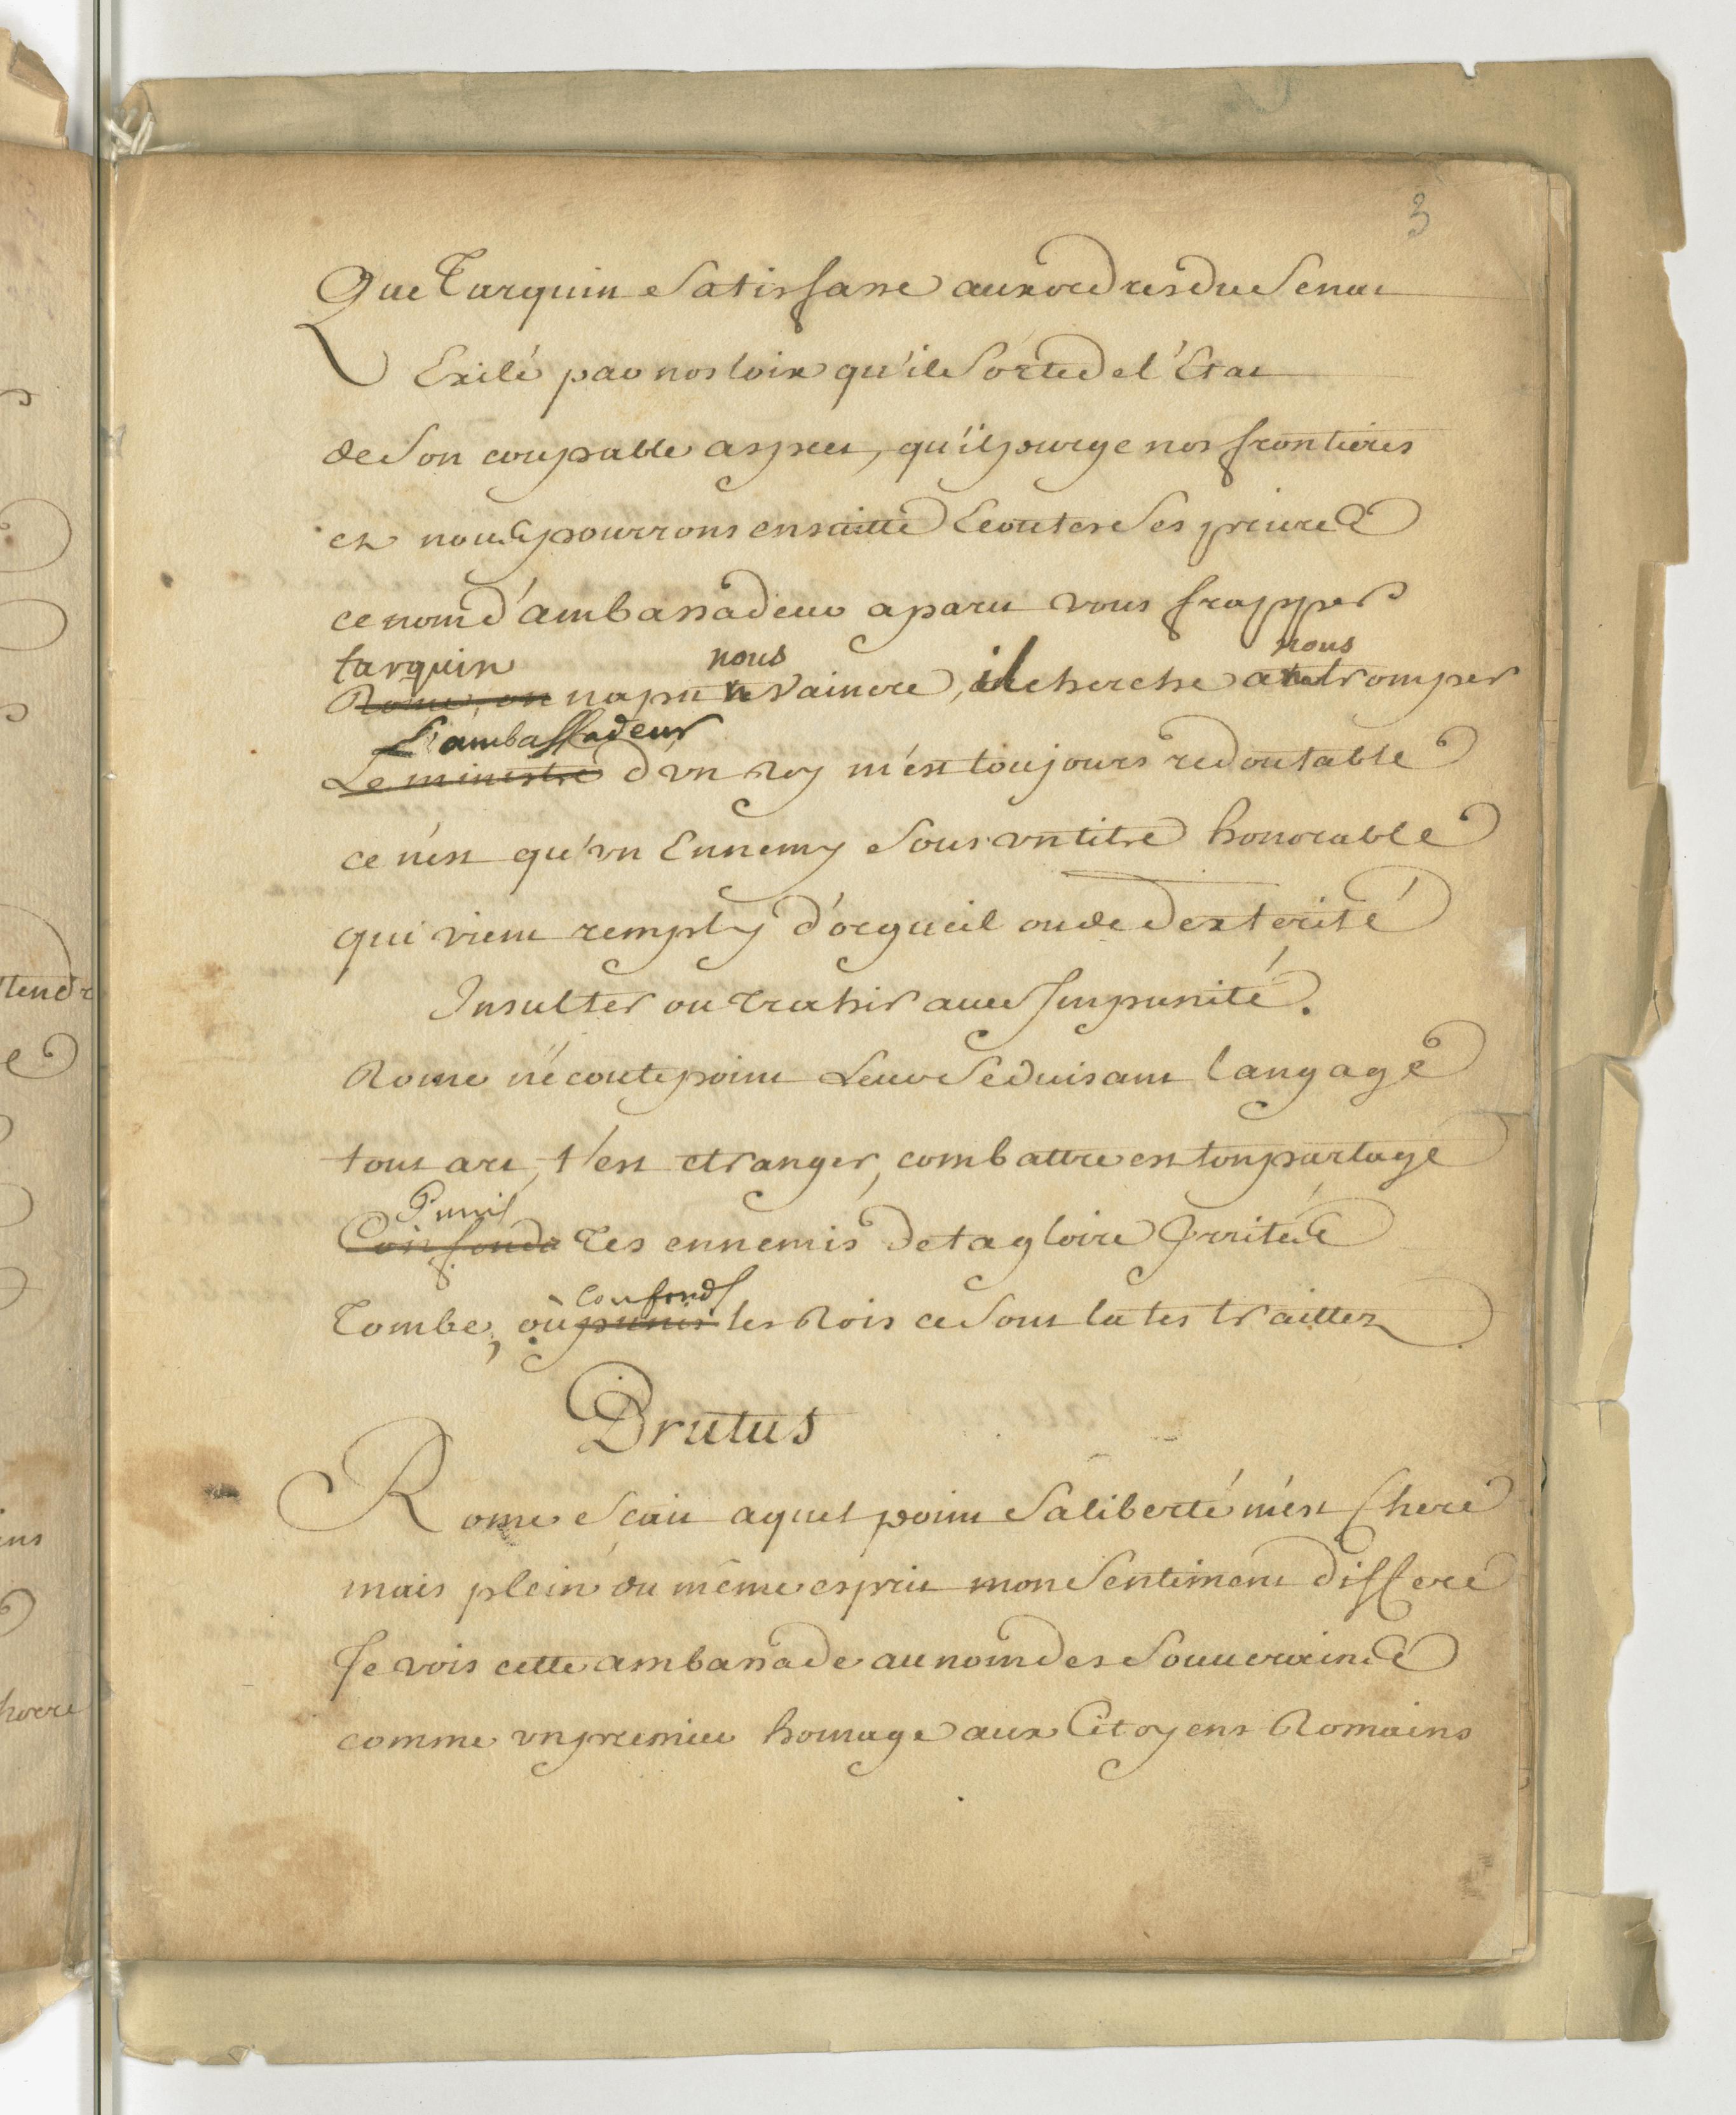 3
Que Tarquin Satisfasse aux ordres du Senat
Exilé par nos loix qu'il Sorte de l'Etat
de Son coupable aspect, qu'il purge nos frontieres
et nous pourrons ensuitte Ecouter Ses prieres
ce nom d'ambassadeur a paru vous frapper
tarquin nous nous
Rome, on na pu Vaincre, il cherche a tromper
L'ambassadeur
Le ministre d'vn Roy m'est toujours redoutable
ce n'est qu'vn Ennemy Sous vn titre honorable
qui vient remply d'orgueil ou de dexterité
Insulter ou trahir avec Impunité.
Rome n'écoute point Leur Seduisant langage
tout art, t'est etranger, combattre est ton partage
Punis
Confonds tes ennemis de ta gloire Irrités
confonds
Tombe, où punis les Rois ce Sont la tes traittez
Brutus
Rome Scait a quel point Sa liberté m'est Chere
mais plein du même esprit mon Sentiment differe
Je vois cette ambassade au nom des Souverains
comme vn premier homage aux Citoyens Romains
tendr